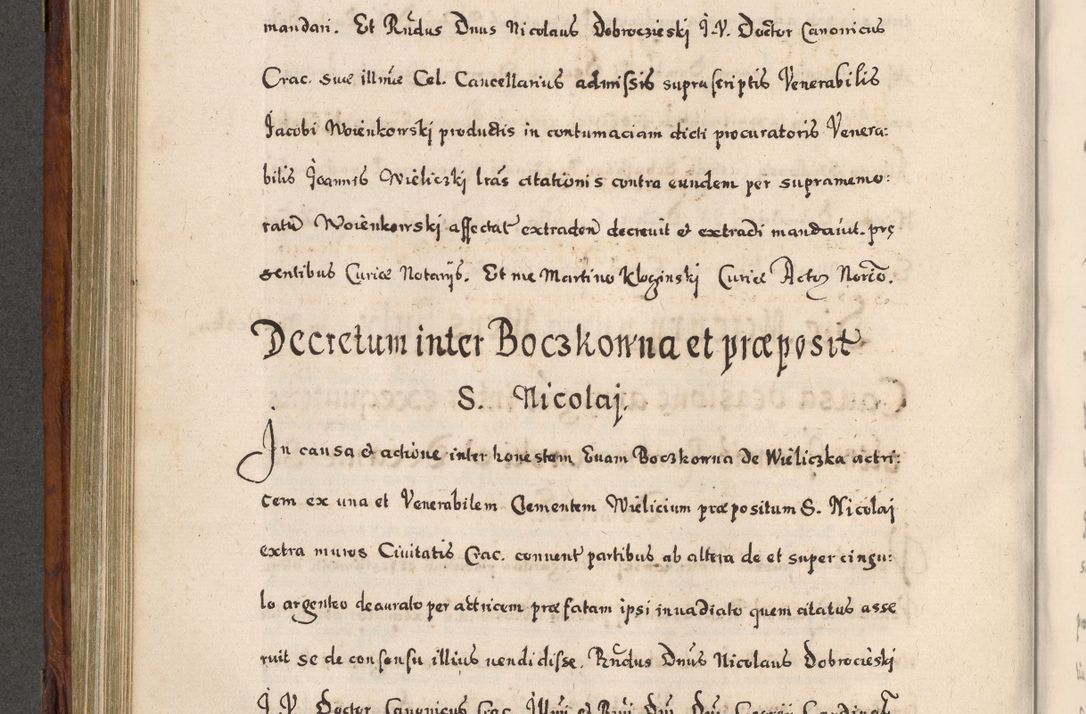 mandari. Et Rńdus Dnus Nicolaus Dobroczieski J.V. Doctor Canonicus
Crac. suæ illmæ Cel. Cancellarius admissis suprascriptis Venerabilis
Jacobi Woienkowski productis in contumaciam dicti procuratoris Venera:
bilis Joannis Wieliczkj lrãs citationis contra eundem per supramemo:
ratũ Woienkowski affectat extradeñ decrevit et extradi mandavit. pręsentibus Curiæ Notarijs. Et me Martino Kloginski Curiæ Actoȝ Norĩo.
Decretum inter Boczkowna et præposit
S. Nicolaj.
In causa et actione inter honestam Evam Boczkowna de Wieliczka actri:
cem ex una et Venerabilem Clementem Wielicium præpositum S. Nicolaj
extra muros Civitatis Crac. convent partibus ab altera de et super cingu:
lo argenteo deaurato per actricem præfatam ipsi invadiato quem citatus asse
ruit se de consensu illius vendidisse. Rńdus Dńus Nicolaus Dobrocieski
J.V. Doctor Canonicus Crac. Illmi et Rmi Dni Dni Georgii Cardinal